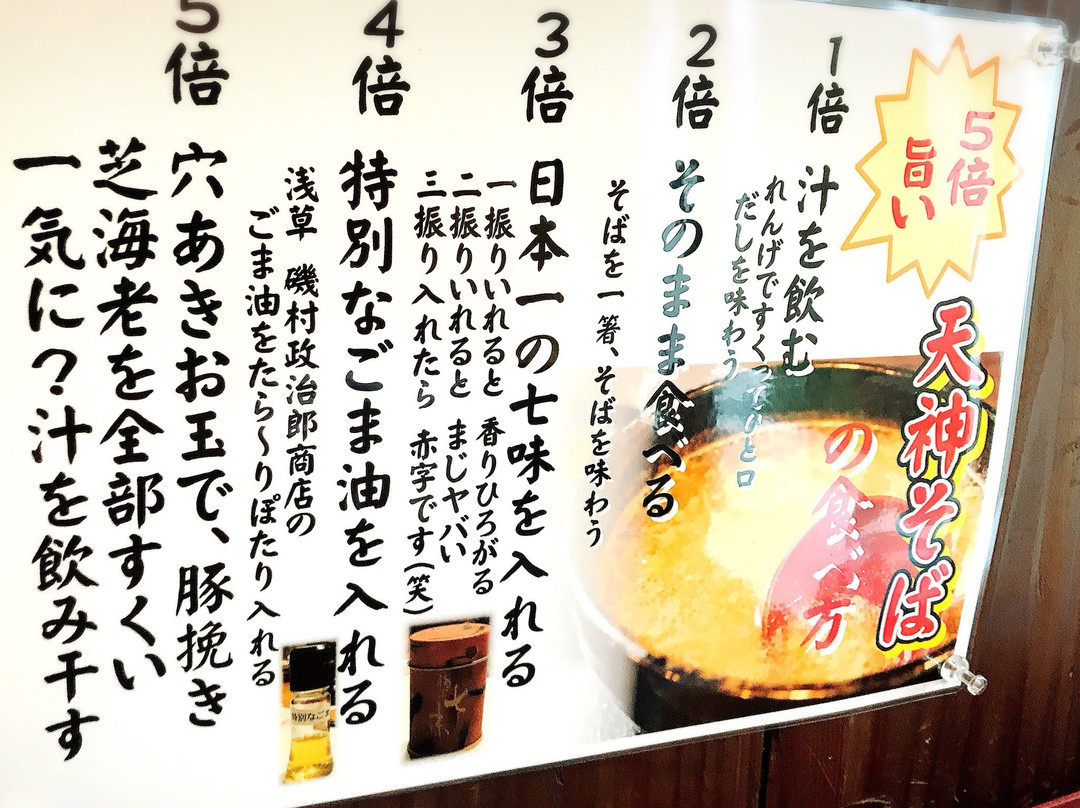 5倍
旨い
天神そば
の食べ方
1倍 汁を飲む
れんげですくってひと口
だしを味わう
2倍 そのまま食べる
そばを一箸、そばを味わう
3倍 日本一の七味を入れる
一振りいれると 香りひろがる
二振りいれると まじヤバい
三振り入れたら 赤字です(笑)
4倍 特別なごま油を入れる
浅草 磯村政治郎商店の
ごま油をたら〜りぽたり入れる
5倍 穴あきお玉で、豚挽き
芝海老を全部すくい
一気に?汁を飲み干す
特別なごま